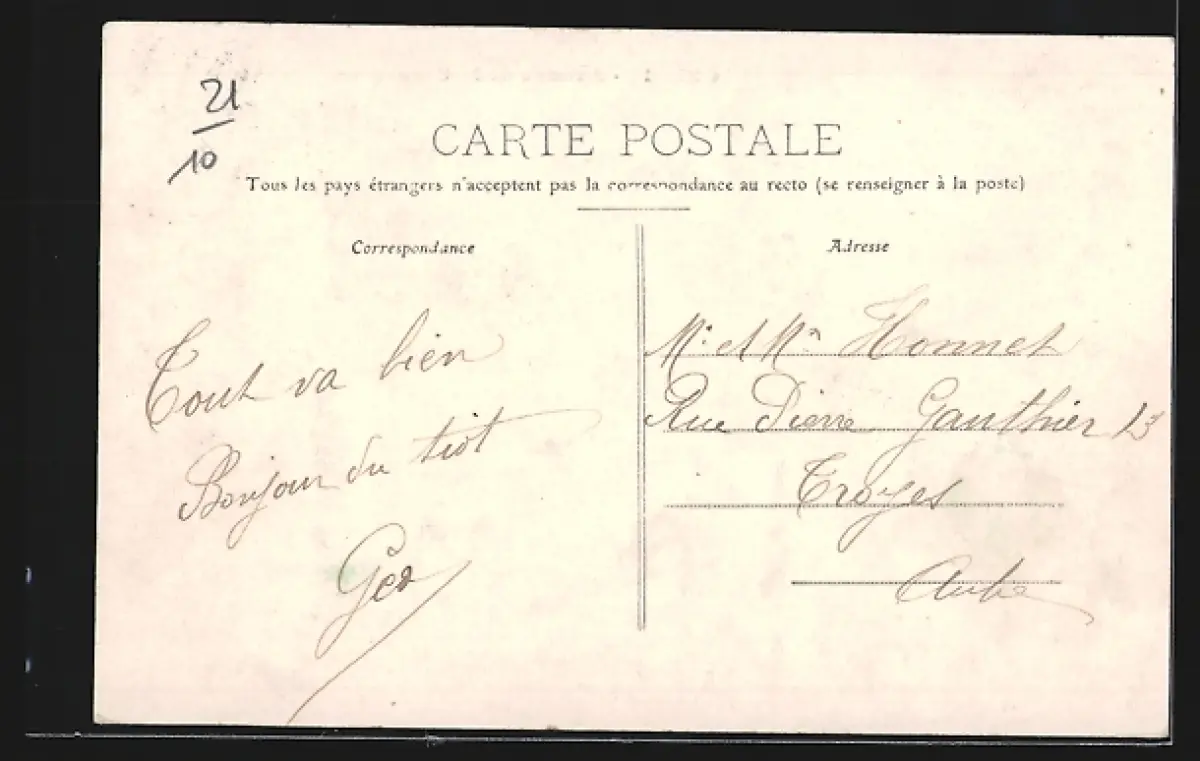 21
10
CARTE POSTALE
Tous les pays étrangers n'acceptent pas la correspondance au recto (se renseigner à la poste)
Correspondance
Adresse
Tout va bien
Bonjour du tiot
Geo
Mr et Mme Honnet
Rue Pierre Gauthier 13
Troyes
Aube